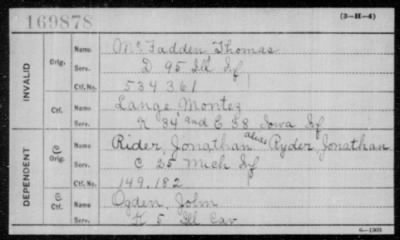 169878
(3-H-4)
INVALID
Orig.
Name Mc Fadden Thomas
Serv. D 95 Ill Inf
Ctf. No. 534361
Ctf.
Name Lange, Montez
Serv. K 34 and E 58 Iowa Inf
DEPENDENT
Orig.
Name Rider, Jonathan alias Ryder, Jonathan
Serv. C 25 Mich Inf
Ctf. No. 149.182
Ctf.
Name Ogden, John
Serv. K 5 Ill Cav